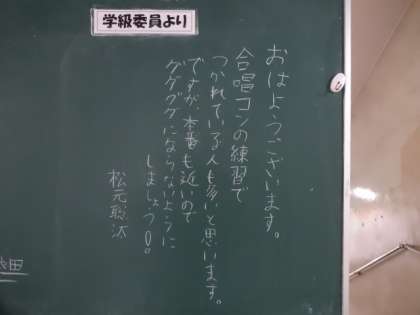 学級委員より
おはようございます。
合唱コンの練習で
つかれている人も多いと思います。
ですが、本番も近いので
グダグダにならないように
しましょう!!
松元聡汰